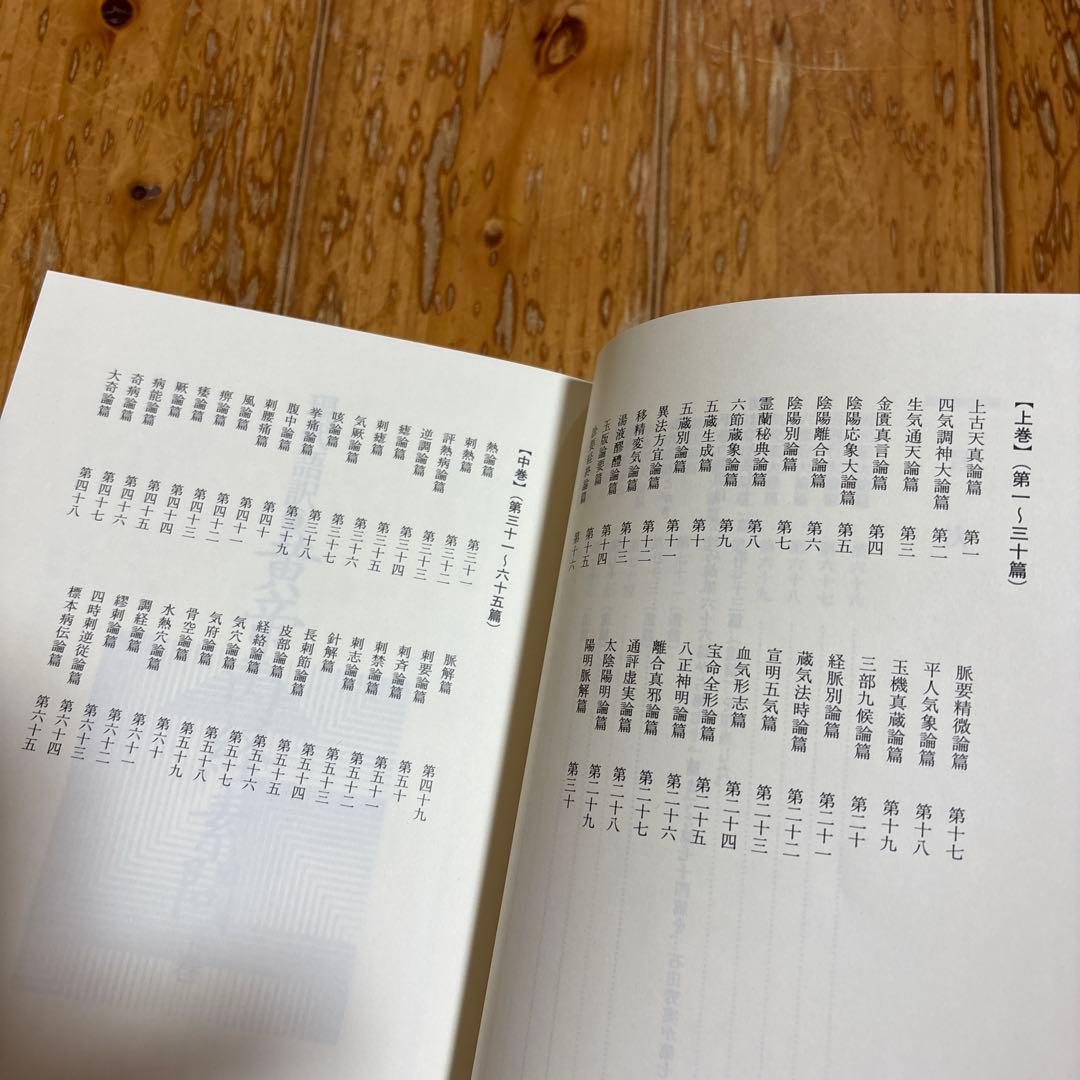 【上巻】(第一～三十篇)
上古天真論篇 第一
四気調神大論篇 第二
生気通天論篇 第三
金匱真言論篇 第四
陰陽応象大論篇 第五
陰陽離合論篇 第六
陰陽別論篇 第七
霊蘭秘典論篇 第八
六節蔵象論篇 第九
五蔵生成篇 第十
五蔵別論篇 第十一
異法方宜論篇 第十二
移精変気論篇 第十三
湯液醪醴論篇 第十四
玉版論要篇 第十五
第十六
脈要精微論篇 第十七
平人気象論篇 第十八
玉機真蔵論篇 第十九
三部九候論篇 第二十
経脈別論篇 第二十一
蔵気法時論篇 第二十二
宣明五気篇 第二十三
血気形志篇 第二十四
宝命全形論篇 第二十五
八正神明論篇 第二十六
離合真邪論篇 第二十七
通評虚実論篇 第二十八
太陰陽明論篇 第二十九
陽明脈解篇 第三十
【中巻】(第三十一～六十五篇)
熱論篇 第三十一
刺熱篇 第三十二
評熱病論篇 第三十三
逆調論篇 第三十四
瘧論篇 第三十五
刺瘧篇 第三十六
気厥論篇 第三十七
咳論篇 第三十八
挙痛論篇 第三十九
腹中論篇 第四十
刺腰痛篇 第四十一
風論篇 第四十二
痹論篇 第四十三
痿論篇 第四十四
厥論篇 第四十五
病能論篇 第四十六
奇病論篇 第四十七
大奇論篇 第四十八
脈解篇 第四十九
刺要論篇 第五十
刺斉論篇 第五十一
刺禁論篇 第五十二
刺志論篇 第五十三
針解篇 第五十四
長刺節論篇 第五十五
皮部論篇 第五十六
経絡論篇 第五十七
気穴論篇 第五十八
気府論篇 第五十九
骨空論篇 第六十
水熱穴論篇 第六十一
調経論篇 第六十二
繆刺論篇 第六十三
四時刺逆従論篇 第六十四
標本病伝論篇 第六十五